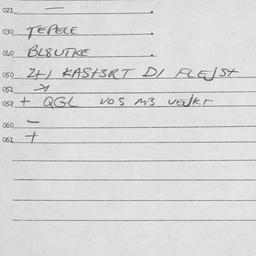 021 —
030 TEPELE
040 BL8UTKE
050 2+1 KAS+3RT D1 FLEJS+
051
052 + QGL VOS M3 VEJKT
060 —
061 +